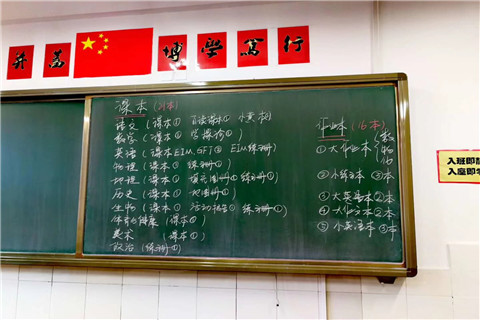 并茂
博学笃行
课本(21本)
语文(课本① 自读课本① 小黄树
数学(课本① 学探诊①)
英语(课本EIM,GF)③ EIM练习册)
物理(课本① 练习册①)
地理(课本① 填充图册① 练习册①)
历史(课本① 地图册①)
生物(课本① 活动报告① 练习册①)
体育与健康(课本①)
美术 (课本①)
政治(练习册①)
作业本(16本)
①大作业本(数物化
②小练习本③本
③大英语本②本
④大作文本②本
⑤小英语本③本
入班即静
入座即学